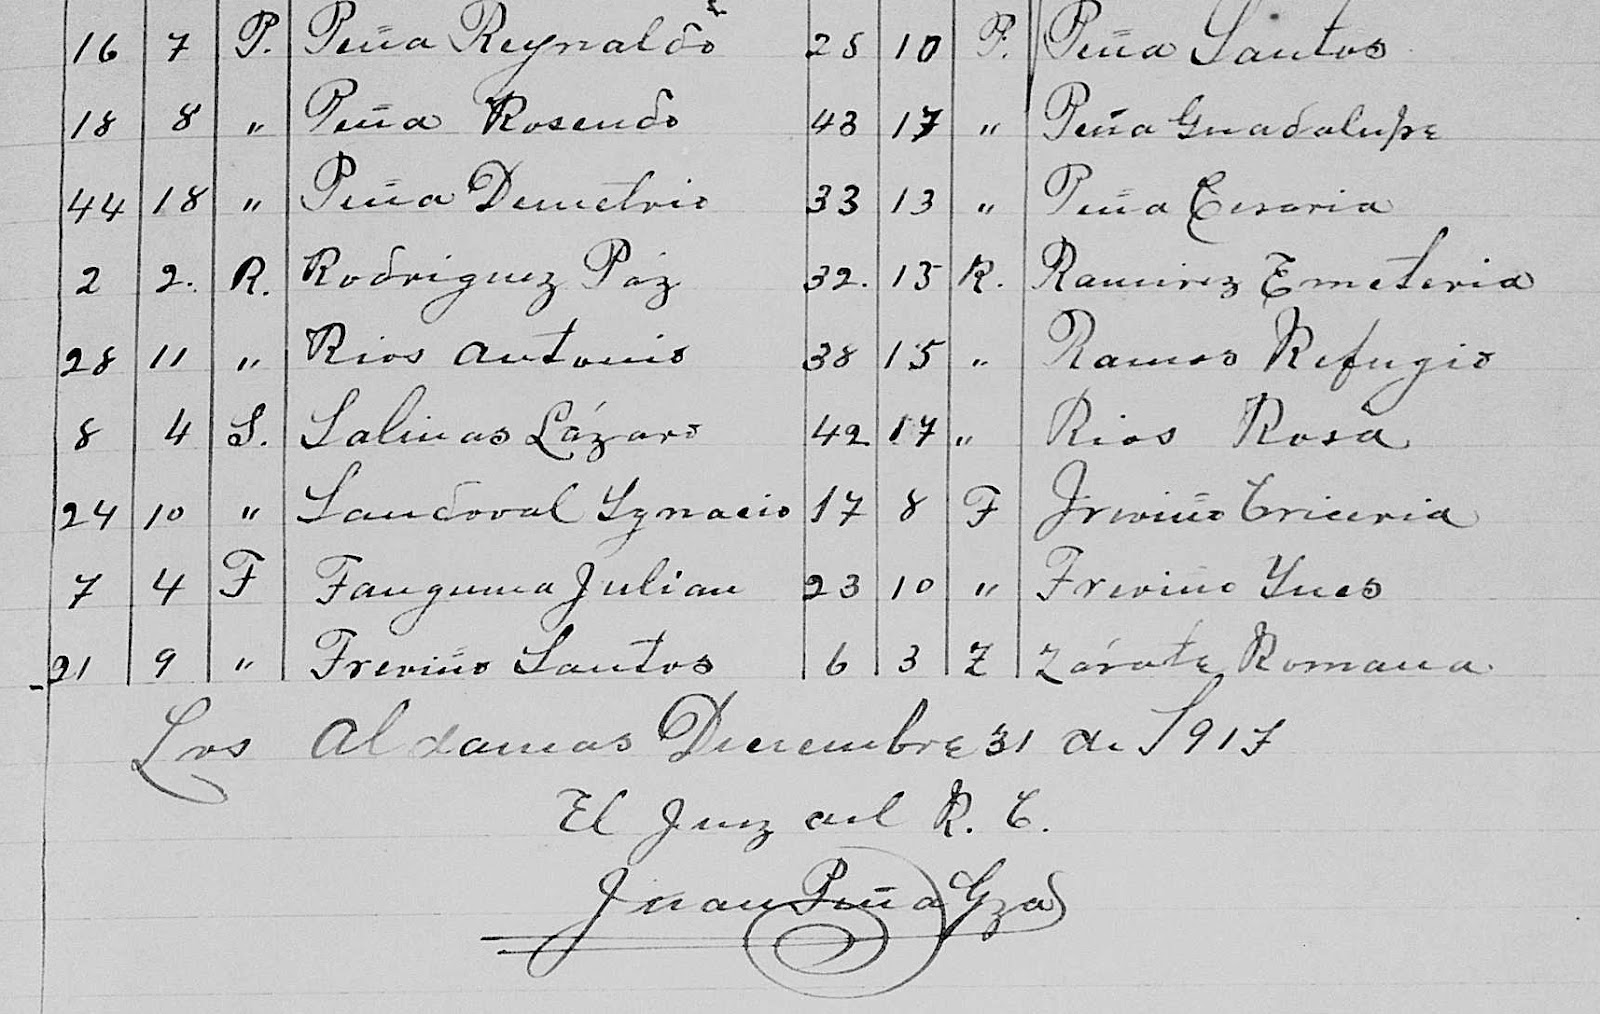 16 7 P. Peña Reynaldo 25 10 P. Peña Santos
18 8 " Peña Rosendo 43 17 " Peña Guadalupe
44 18 " Peña Demetrio 33 13 " Peña Cesaria
2 2. R. Rodriguez Páz 32. 13 R. Ramirez Emeteria
28 11 " Rios Antonio 38 15 " Ramos Refugio
8 4 S. Salinas Lázaro 42 17 " Rios Rosa
24 10 " Sandoval Ygnacio 17 8 T Treviño
7 4 T Tanguma Julian 23 10 " Treviño Ynes
21 9 " Treviño Santos 6 3 Z Zárate Romana
Los Aldamas Diciembre 31 de 1917
El Juez del R. C.
Juan Peña Gza